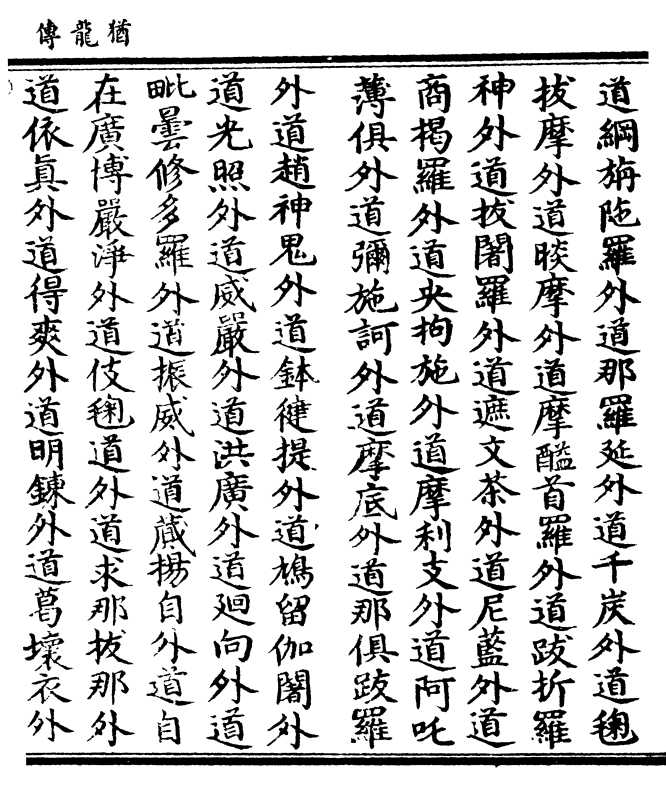 猶龍傳
道綱旃陁羅外道那羅延外道千炭外道毱
拔摩外道晱摩外道摩醯首羅外道跋折羅
神外道拔闍羅外道遮文茶外道尼藍外道
商揭羅外道央拘施外道摩利支外道阿吒
薄俱外道彌施訶外道摩底外道那俱跋羅
外道趙神鬼外道鉢健提外道鳩留伽闍外
道光照外道威嚴外道洪廣外道廻向外道
毗曇修多羅外道振威外道蔵揚自外道自
在廣博嚴淨外道伎毱道外道求那拔那外
道依真外道得爽外道明鍊外道葛壞衣外